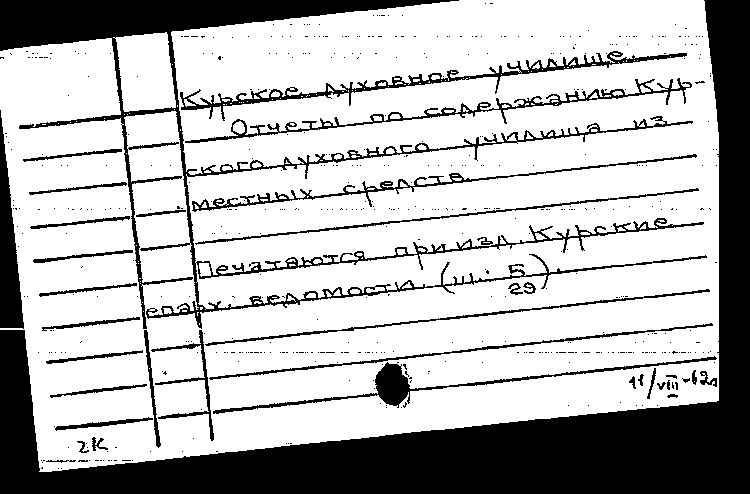 Курское духовное училище.
Отчеты по содержанию Кур-
ского духовного училища из
местных средств.
Печатаются при изд. Курские
епарх. ведомости. (ш: Б/29).
11/VIII-62г
2К